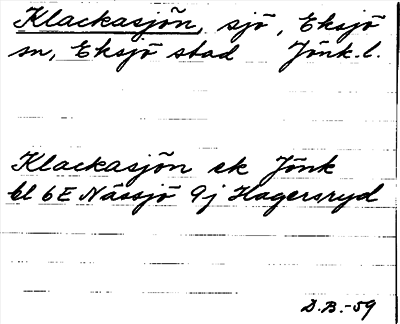 Klackasjön, sjö, Eksjö
sn, Eksjö stad Jönk.l.
Klackasjön ek Jönk
bl 6E Nässjö 9j Hagersryd
D.B.-59